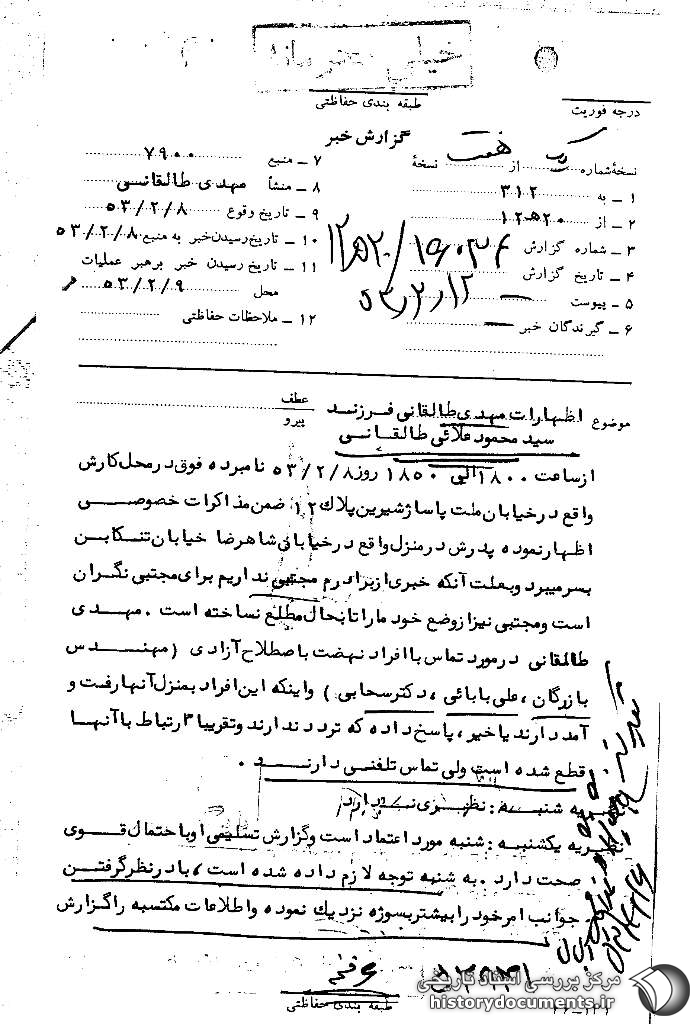 خیلی محرمانه
طبقه بندی حفاظتی
درجه فوریت
گزارش خبر
نسخهٔ شماره یک از هفت نسخهٔ
۱ ـ به ۳۱۲
۲ ـ از ۲۰ه‍۱۲
۳ ـ شماره گزارش ۱۲ه‍۲۰/۱۶۰۳۴
۴ ـ تاریخ گزارش ۵۳٫۲٫۱۲
۵ ـ پیوست —
۶ ـ گیرندگان خبر —
۷ ـ منبع ۷۹۰۰
۸ ـ منشأ مهدی طالقانی
۹ ـ تاریخ وقوع ۵۳/۲/۸
۱۰ ـ تاریخ رسیدن خبر به منبع ۵۳/۲/۸
۱۱ ـ تاریخ رسیدن خبر برهبر عملیات
محل ۵۳/۲/۹
۱۲ ـ ملاحظات حفاظتی
موضوع اظهارات مهدی طالقانی فرزند
سید محمود علائی طالقانی
عطف
پیرو
از ساعت ۱۸۰۰ الی ۱۸۵۰ روز ۵۳/۲/۸ نامبرده فوق در محل کارش
واقع در خیابان ملت پاساژ شیرین پلاک ۱۲ ضمن مذاکرات خصوصی
اظهار نموده پدرش در منزل واقع در خیابانی شاهرضا خیابان تنکابن
بسر میبرد و بعلت آنکه خبری از برادرم مجتبی نداریم برای مجتبی نگران
است و مجتبی نیز از وضع خود ما را تا بحال مطلع نساخته است . مهدی
طالقانی در مورد تماس با افراد نهضت باصطلاح آزادی (مهندس
بازرگان ، علی بابائی ، دکتر سحابی ) و اینکه این افراد بمنزل آنها رفت و
آمد دارند یا خیر ، پاسخ داده که تردد ندارند و تقریبا" ارتباط با آنها
قطع شده است ولی تماس تلفنی دارند .
نظریه شنبه : نظری ندارد
نظریه یکشنبه : شنبه مورد اعتماد است و گزارش تسلیمی او با احتمال قوی
صحت دارد . به شنبه توجه لازم داده شده است ، با در نظر گرفتن
جوانب امر خود را بیشتر بسوژه نزدیک نموده و اطلاعات مکتسبه را گزارش
طبقه بندی حفاظتی
مرکز بررسی اسناد تاریخی
historydocuments.ir